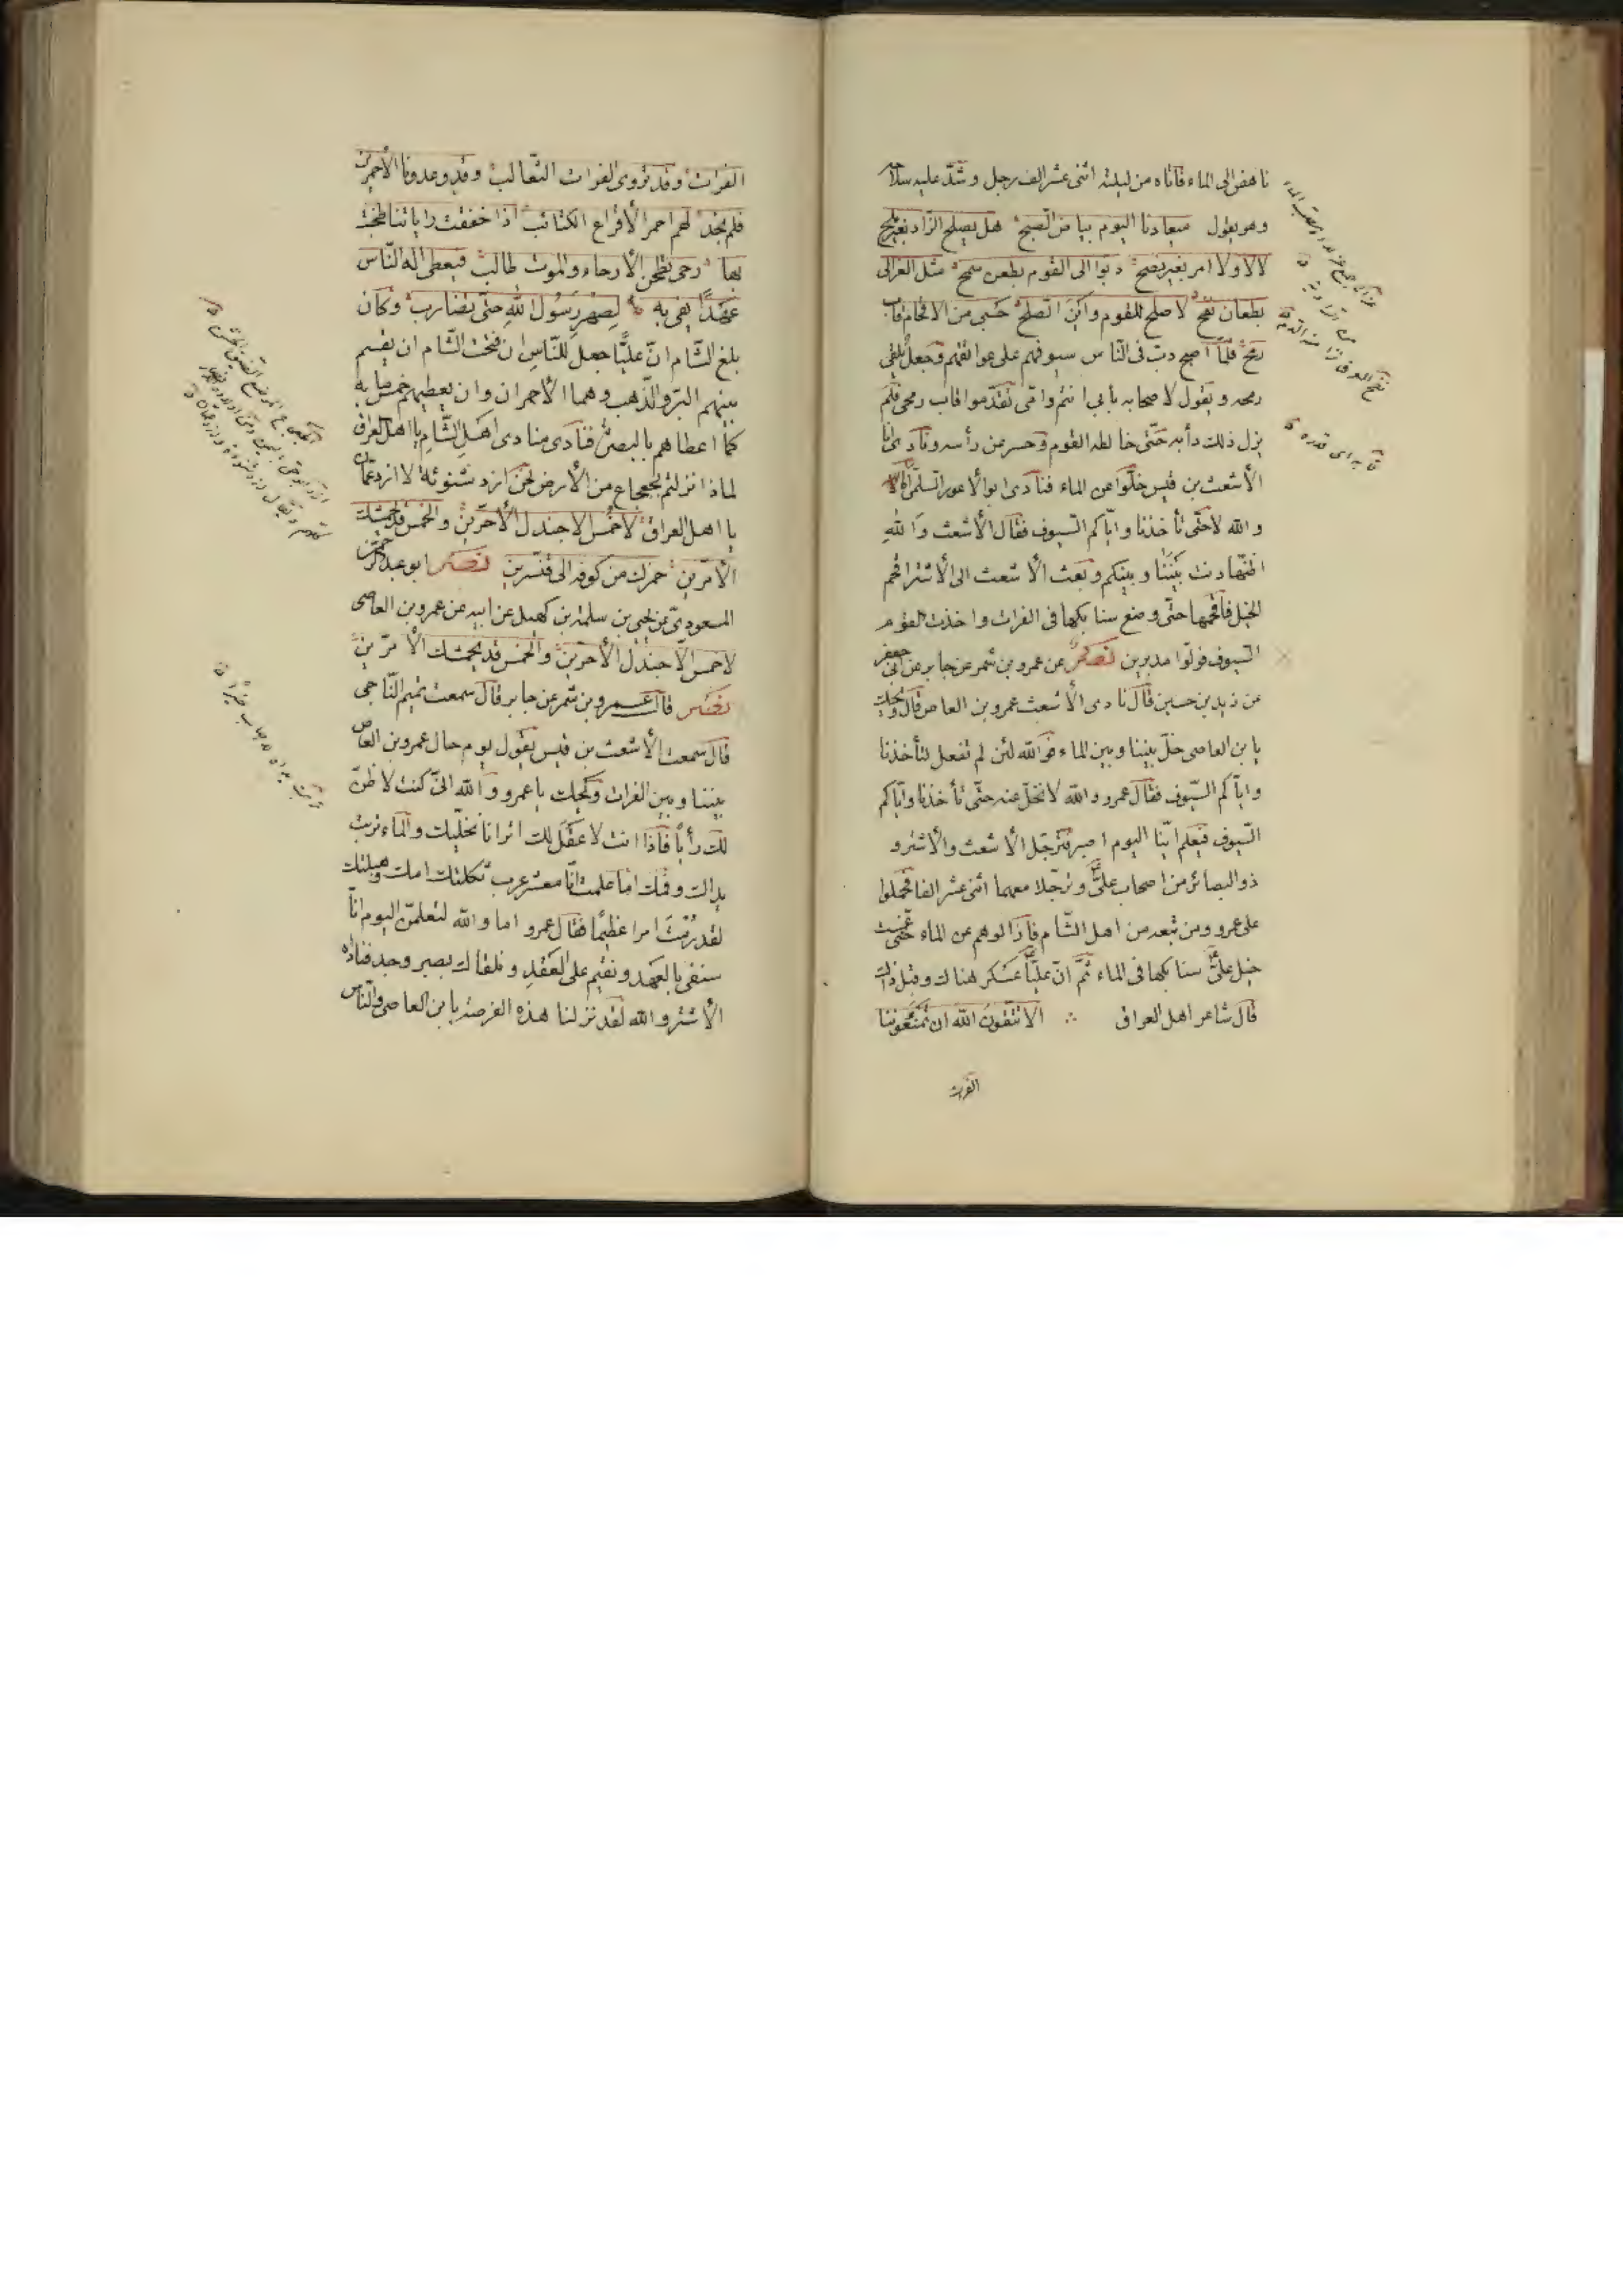 ناهض الى الماء فاتاه من ليلته اثنى عشر الف رجل وشدّ عليه سلاحه
وهو يقول ميعادنا اليوم بياض الصّبح هل يصلح الزّاد بغير ملح
لالا ولا امر بغير نصح دبّوا الى القوم بطعن سمح مثل العزالى
بطعان نفح لا صلح للقوم واين الصّلح حسبى من الاقحام قاب
رمح فلمّا اصبح دبّ فى النّاس سيوفهم على عواتقهم وجعل يلقى
رمحه ويقول لاصحابه بأبى انتم وامّى تقدّموا قاب رمحى فلم
يزل ذلك دأبه حتّى خالط القوم وحسر عن رأسه ونادى انا
الأشعث بن قيس خلّوا عن الماء فنادى ابو الأعور السّلمى اما
والله لا حتّى تأخذنا وايّاكم السّيوف فقال الأشعث والله
اظنّها دنت بيننا وبينكم وبعث الأشعث الى الأشتر اقحم
الخيل فاقحمها حتّى وضع سنابكها فى الفرات واخذت القوم
السّيوف فولّوا مدبرين نصر عن عمرو بن شمر عن جابر عن ابى جعفر
عن زيد بن حسين قال نادى الأشعث عمرو بن العاص قال ويحك
يا بن العاصى خلّ بيننا وبين الماء فوالله لئن لم تفعل لتأخذنا
وايّاكم السّيوف فقال عمرو والله لا نخلّ عنه حتّى تأخذنا وايّاكم
السّيوف فيعلم ايّنا اليوم اصبر فترجّل الأشعث والأشتر و
ذوالبصائر من اصحاب علىّ وترجّلا معهما اثنى عشر الفا فحملوا
على عمرو ومن تبعه من اهل الشّام فازالوهم عن الماء حتّى غمست
خيل علىّ سنابكها فى الماء ثمّ انّ عليّا عسكر هناك وقبل ذلك
قال شاعر اهل العراق ∴ الا تتّقون الله ان تمنعوننا
الفرات
الفرات وقد تروى الفرات الثّعالب وقد وعدونا الأحمرين
فلم نجد لهم احمر الأقراع الكتائب اذا خفقت راياتنا طحنت
بها رحى تطحن الأرحاء والموت طالب فيعطى اله النّاس
عهدًا يفى به لصهر رسول الله حتّى نضارب وكان
بلغ الشّام انّ عليًّا جعل للنّاس ان فتحت الشّام ان يقسم
بينهم التبر والذّهب وهما الأحمران وان يعطيهم خمسمايه
كما اعطاهم بالبصرة فنادى منادى اهل الشّام يا اهل العراق
لماذا نزلتم بجعجاع من الأرض نحن ازد شنوئة لا ازد عمان
يا اهل العراق لا خمس الا جندل الأحرّين والخمس قد تجشمك
الأمرّين جمزا من كوفه الى قنّسرين نصر ابو عبد الرّحمن
المسعودىّ عن يحيى بن سلمة بن كهيل عن ابيه عن عمرو بن العاصى
لا خمس الّا جندل الأحرّين والخمس قد تجشمك الأمرّين
نصر قال عمرو بن شمر عن جابر قال سمعت تميم النّاجى
قال سمعت الأشعث بن قيس يقول يوم حال عمرو بن العاص
بيننا وبين الفرات ويحك يا عمرو والله انّى كنت لاظنّ
لك رأيا فاذا انت لا عقل لك اترانا نخلّيك والماء تربت
يداك وفمك اما علمت انّا معشر عرب ثكلتك امك وهبلتك
لقد رمت امرا عظيمًا فقال عمرو اما والله لتعلمنّ اليوم انّا
سنفى بالعهد ونقيم على العقد ونلقاك بصبر وجد فناداه
الأشتر والله لقد نزلنا هذه الفرضة يا بن العاصى والنّاس